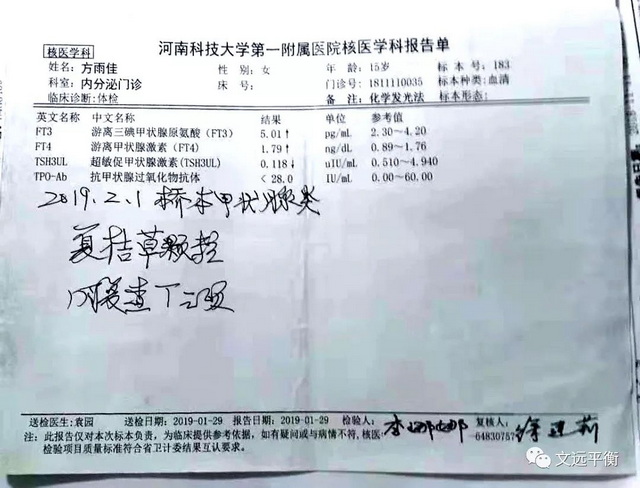 河南科技大学第一附属医院核医学科报告单
核医学科
姓名: 方雨佳 性 别: 女 年 龄: 15岁 标 本 号: 183
科室: 内分泌门诊 床 号: 门诊号: 1811110035 标本种类: 血清
临床诊断: 体检 备 注: 化学发光法 标本形态:
英文名称 中文名称 结果 单位 参考值
FT3 游离三碘甲状腺原氨酸 (FT3) 5.01↑ pg/mL 2.30～4.20
FT4 游离甲状腺激素 (FT4) 1.79↑ ng/dL 0.89～1.76
TSH3UL 超敏促甲状腺激素(TSH3UL) 0.118↓ uIU/mL 0.510～4.940
TPO-Ab 抗甲状腺过氧化物抗体 < 28.0 IU/mL 0.00～60.00
2019.2.1 桥本甲状腺炎
夏枯草颗粒
复查T三项
送检医生: 袁园 送检日期: 2019-01-29 报告日期: 2019-01-29 检验人: 李娜娜 复核人:
注: 此报告仅对本次标本负责, 为临床提供参考依据, 如有疑问或与病情不符, 核医 64830757
检验项目质量标准符合省卫计委结果互认要求。
文远平衡